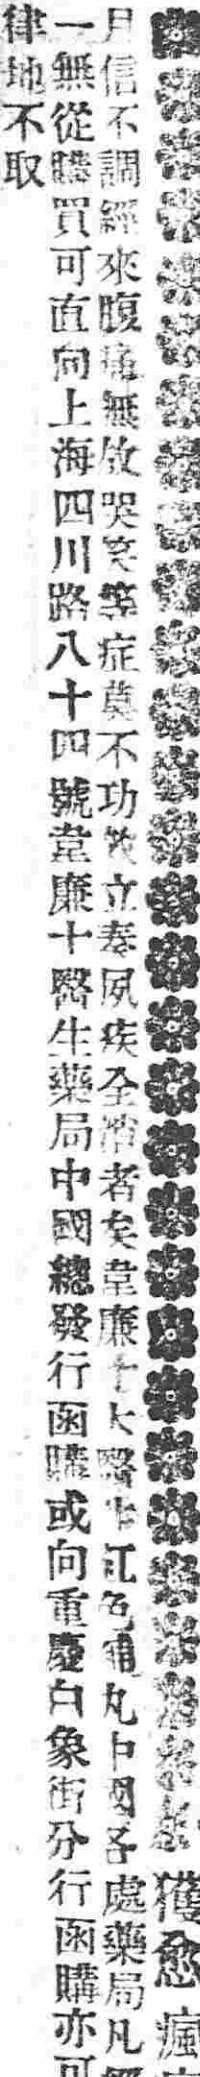 獲愈瘋
月信不調經來腹痛無故哭笑等症莫不功效立奏夙疾全消者矣韋廉士大醫生紅色補丸中國各處藥局凡
一無從購買可直向上海四川路八十四號韋廉士醫生藥局中國總發行函購或向重慶白象街分行函購亦可
律地不取